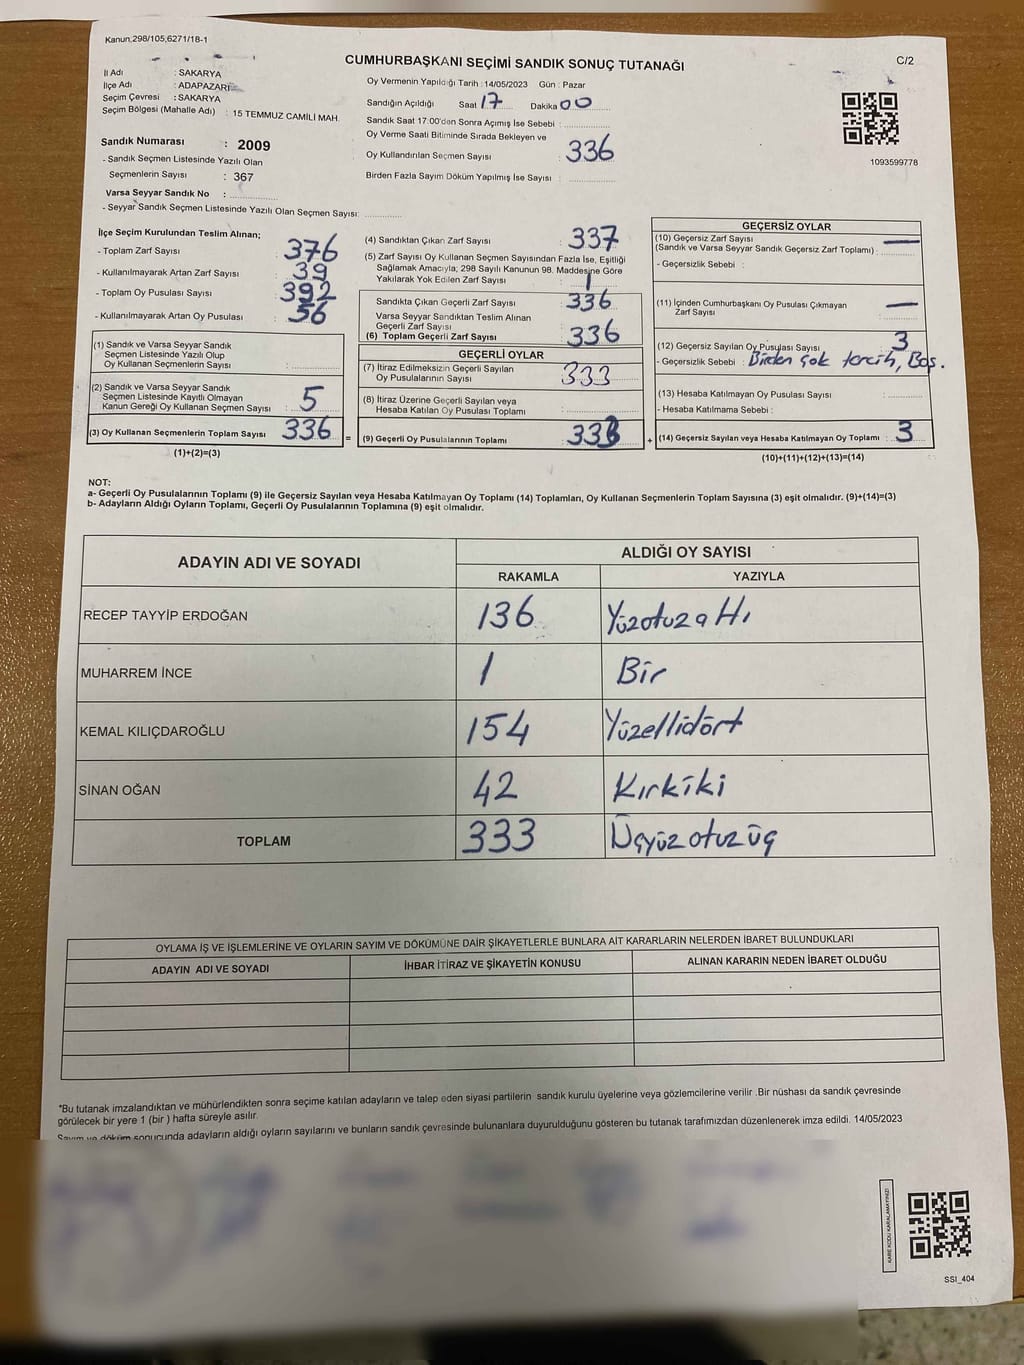 Kanun;298/105,6271/18-1
CUMHURBAŞKANI SEÇİMİ SANDIK SONUÇ TUTANAĞI
C/2
İl Adı : SAKARYA
İlçe Adı : ADAPAZARI
Seçim Çevresi : SAKARYA
Seçim Bölgesi (Mahalle Adı) : 15 TEMMUZ CAMİLİ MAH.
Sandık Numarası : 2009
- Sandık Seçmen Listesinde Yazılı Olan
Seçmenlerin Sayısı : 367
Varsa Seyyar Sandık No :
- Seyyar Sandık Seçmen Listesinde Yazılı Olan Seçmen Sayısı:
Oy Vermenin Yapıldığı Tarih : 14/05/2023 Gün : Pazar
Sandığın Açıldığı Saat 17 Dakika 00
Sandık Saat 17:00'den Sonra Açımış İse Sebebi :
Oy Verme Saati Bitiminde Sırada Bekleyen ve
Oy Kullandırılan Seçmen Sayısı : 336
Birden Fazla Sayım Döküm Yapılmış İse Sayısı :
1093599778
İlçe Seçim Kurulundan Teslim Alınan;
- Toplam Zarf Sayısı : 376
- Kullanılmayarak Artan Zarf Sayısı : 39
- Toplam Oy Pusulası Sayısı : 392
- Kullanılmayarak Artan Oy Pusulası : 56
(1) Sandık ve Varsa Seyyar Sandık
Seçmen Listesinde Yazılı Olup
Oy Kullanan Seçmenlerin Sayısı :
(2) Sandık ve Varsa Seyyar Sandık
Seçmen Listesinde Kayıtlı Olmayan
Kanun Gereği Oy Kullanan Seçmen Sayısı : 5
(3) Oy Kullanan Seçmenlerin Toplam Sayısı : 336 =
(1)+(2)=(3)
(4) Sandıktan Çıkan Zarf Sayısı : 337
(5) Zarf Sayısı Oy Kullanan Seçmen Sayısından Fazla İse, Eşitliği
Sağlamak Amacıyla; 298 Sayılı Kanunun 98. Maddesine Göre
Yakılarak Yok Edilen Zarf Sayısı : 1
Sandıkta Çıkan Geçerli Zarf Sayısı : 336
Varsa Seyyar Sandıktan Teslim Alınan
Geçerli Zarf Sayısı :
(6) Toplam Geçerli Zarf Sayısı : 336
GEÇERLİ OYLAR
(7) İtiraz Edilmeksizin Geçerli Sayılan
Oy Pusulalarının Sayısı : 333
(8) İtiraz Üzerine Geçerli Sayılan veya
Hesaba Katılan Oy Pusulası Toplamı :
(9) Geçerli Oy Pusulalarının Toplamı : 333 +
GEÇERSİZ OYLAR
(10) Geçersiz Zarf Sayısı
(Sandık ve Varsa Seyyar Sandık Geçersiz Zarf Toplamı) : —
- Geçersizlik Sebebi :
(11) İçinden Cumhurbaşkanı Oy Pusulası Çıkmayan : —
Zarf Sayısı
(12) Geçersiz Sayılan Oy Pusulası Sayısı : 3
- Geçersizlik Sebebi : Birden çok tercih, Boş.
(13) Hesaba Katılmayan Oy Pusulası Sayısı :
- Hesaba Katılmama Sebebi :
(14) Geçersiz Sayılan veya Hesaba Katılmayan Oy Toplamı : 3
(10)+(11)+(12)+(13)=(14)
NOT:
a- Geçerli Oy Pusulalarının Toplamı (9) ile Geçersiz Sayılan veya Hesaba Katılmayan Oy Toplamı (14) Toplamları, Oy Kullanan Seçmenlerin Toplam Sayısına (3) eşit olmalıdır. (9)+(14)=(3)
b- Adayların Aldığı Oyların Toplamı, Geçerli Oy Pusulalarının Toplamına (9) eşit olmalıdır.
ADAYIN ADI VE SOYADI
ALDIĞI OY SAYISI
RAKAMLA YAZIYLA
RECEP TAYYİP ERDOĞAN 136 Yüzotuzaltı
MUHARREM İNCE 1 Bir
KEMAL KILIÇDAROĞLU 154 Yüzellidört
SİNAN OĞAN 42 Kırkiki
TOPLAM 333 Üçyüzotuzüç
OYLAMA İŞ VE İŞLEMLERİNE VE OYLARIN SAYIM VE DÖKÜMÜNE DAİR ŞİKAYETLERLE BUNLARA AİT KARARLARIN NELERDEN İBARET BULUNDUKLARI
ADAYIN ADI VE SOYADI İHBAR İTİRAZ VE ŞİKAYETİN KONUSU ALINAN KARARIN NEDEN İBARET OLDUĞU
*Bu tutanak imzalandıktan ve mühürlendikten sonra seçime katılan adayların ve talep eden siyasi partilerin sandık kurulu üyelerine veya gözlemcilerine verilir .Bir nüshası da sandık çevresinde
görülecek bir yere 1 (bir ) hafta süreyle asılır.
Sayım ve döküm sonucunda adayların aldığı oyların sayılarını ve bunların sandık çevresinde bulunanlara duyurulduğunu gösteren bu tutanak tarafımızdan düzenlenerek imza edildi. 14/05/2023
KARE KODU KARALAMAYINIZ!
SSI_404